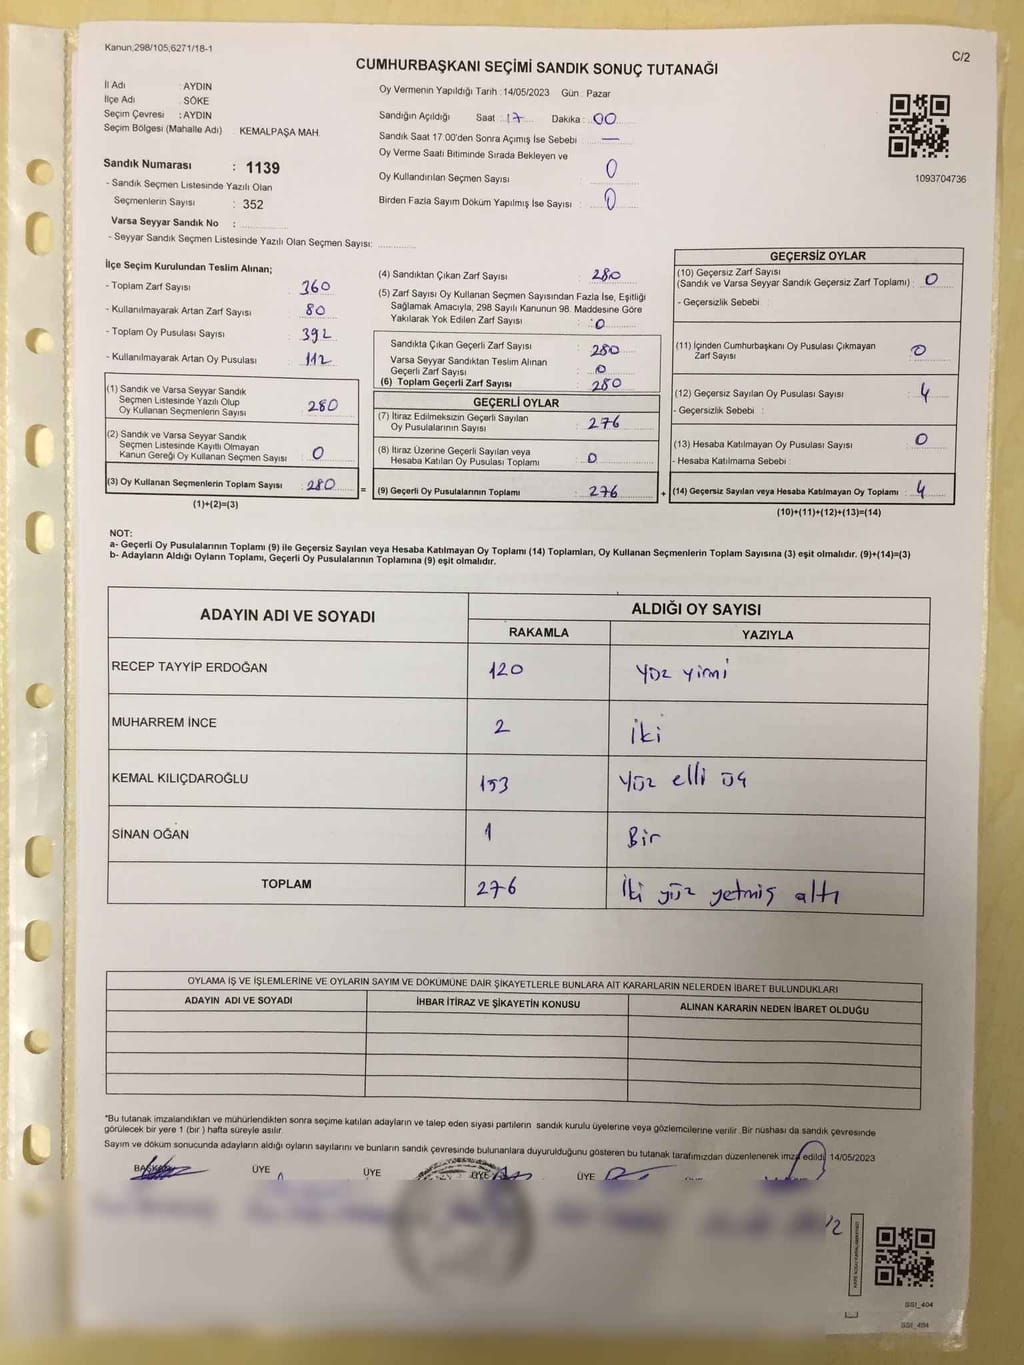 Kanun,298/105,6271/18-1
C/2
CUMHURBAŞKANI SEÇİMİ SANDIK SONUÇ TUTANAĞI
İl Adı : AYDIN
İlçe Adı : SÖKE
Seçim Çevresi : AYDIN
Seçim Bölgesi (Mahalle Adı) : KEMALPAŞA MAH.
Sandık Numarası : 1139
- Sandık Seçmen Listesinde Yazılı Olan
Seçmenlerin Sayısı : 352
Varsa Seyyar Sandık No :
- Seyyar Sandık Seçmen Listesinde Yazılı Olan Seçmen Sayısı:
Oy Vermenin Yapıldığı Tarih : 14/05/2023 Gün : Pazar
Sandığın Açıldığı Saat : 17 Dakika : 00
Sandık Saat 17:00'den Sonra Açımış İse Sebebi : —
Oy Verme Saati Bitiminde Sırada Bekleyen ve
Oy Kullandırılan Seçmen Sayısı : 0
Birden Fazla Sayım Döküm Yapılmış İse Sayısı : 0
1093704736
İlçe Seçim Kurulundan Teslim Alınan;
- Toplam Zarf Sayısı : 360
- Kullanılmayarak Artan Zarf Sayısı : 80
- Toplam Oy Pusulası Sayısı : 392
- Kullanılmayarak Artan Oy Pusulası : 112
(1) Sandık ve Varsa Seyyar Sandık
Seçmen Listesinde Yazılı Olup
Oy Kullanan Seçmenlerin Sayısı : 280
(2) Sandık ve Varsa Seyyar Sandık
Seçmen Listesinde Kayıtlı Olmayan
Kanun Gereği Oy Kullanan Seçmen Sayısı : 0
(3) Oy Kullanan Seçmenlerin Toplam Sayısı : 280
(1)+(2)=(3)
(4) Sandıktan Çıkan Zarf Sayısı : 280
(5) Zarf Sayısı Oy Kullanan Seçmen Sayısından Fazla İse, Eşitliği
Sağlamak Amacıyla, 298 Sayılı Kanunun 98. Maddesine Göre
Yakılarak Yok Edilen Zarf Sayısı : 0
Sandıkta Çıkan Geçerli Zarf Sayısı : 280
Varsa Seyyar Sandıktan Teslim Alınan
Geçerli Zarf Sayısı : 0
(6) Toplam Geçerli Zarf Sayısı : 280
GEÇERLİ OYLAR
(7) İtiraz Edilmeksizin Geçerli Sayılan
Oy Pusulalarının Sayısı : 276
(8) İtiraz Üzerine Geçerli Sayılan veya
Hesaba Katılan Oy Pusulası Toplamı : 0
= (9) Geçerli Oy Pusulalarının Toplamı : 276
GEÇERSİZ OYLAR
(10) Geçersiz Zarf Sayısı
(Sandık ve Varsa Seyyar Sandık Geçersiz Zarf Toplamı) : 0
- Geçersizlik Sebebi :
(11) İçinden Cumhurbaşkanı Oy Pusulası Çıkmayan
Zarf Sayısı : 0
(12) Geçersiz Sayılan Oy Pusulası Sayısı : 4
- Geçersizlik Sebebi :
(13) Hesaba Katılmayan Oy Pusulası Sayısı : 0
- Hesaba Katılmama Sebebi :
+ (14) Geçersiz Sayılan veya Hesaba Katılmayan Oy Toplamı : 4
(10)+(11)+(12)+(13)=(14)
NOT:
a- Geçerli Oy Pusulalarının Toplamı (9) ile Geçersiz Sayılan veya Hesaba Katılmayan Oy Toplamı (14) Toplamları, Oy Kullanan Seçmenlerin Toplam Sayısına (3) eşit olmalıdır. (9)+(14)=(3)
b- Adayların Aldığı Oyların Toplamı, Geçerli Oy Pusulalarının Toplamına (9) eşit olmalıdır.
ADAYIN ADI VE SOYADI
ALDIĞI OY SAYISI
RAKAMLA YAZIYLA
RECEP TAYYİP ERDOĞAN 120 yüz yirmi
MUHARREM İNCE 2 iki
KEMAL KILIÇDAROĞLU 153 yüz elli üç
SİNAN OĞAN 1 Bir
TOPLAM 276 İki yüz yetmiş altı
OYLAMA İŞ VE İŞLEMLERİNE VE OYLARIN SAYIM VE DÖKÜMÜNE DAİR ŞİKAYETLERLE BUNLARA AİT KARARLARIN NELERDEN İBARET BULUNDUKLARI
ADAYIN ADI VE SOYADI İHBAR İTİRAZ VE ŞİKAYETİN KONUSU ALINAN KARARIN NEDEN İBARET OLDUĞU
*Bu tutanak imzalandıktan ve mühürlendikten sonra seçime katılan adayların ve talep eden siyasi partilerin sandık kurulu üyelerine veya gözlemcilerine verilir. Bir nüshası da sandık çevresinde
görülecek bir yere 1 (bir ) hafta süreyle asılır
Sayım ve döküm sonucunda adayların aldığı oyların sayılarını ve bunların sandık çevresinde bulunanlara duyurulduğunu gösteren bu tutanak tarafımızdan düzenlenerek imza edildi. 14/05/2023
BAŞKAN ÜYE ÜYE ÜYE ÜYE
SSI_404
SSI_404